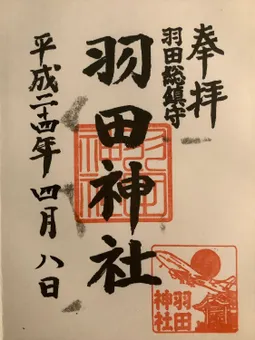 奉拝
羽田総鎮守
羽田神社
平成二十四年 四月 八日
羽田
神社